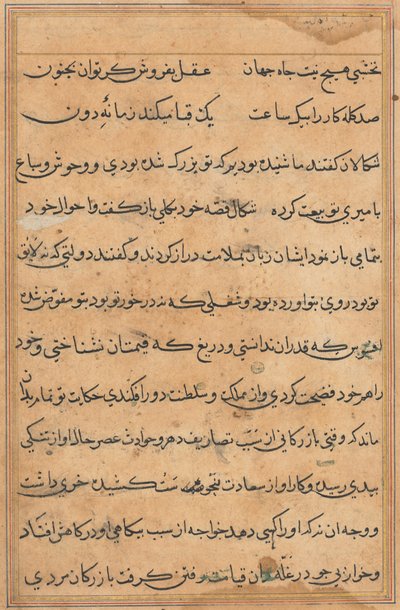 نخشبی هیچ نیت جاه جهان عقل بفروش کر توان بجنون
صد کله کار را بیک ساعت یک قبا میکند زمانهٔ دون
شکالان کفتند ما شنیده بودیم که تو بزرک شده بودی و وحوش و سباع
با میری تو بیعت کرده شکال قصه خود بکلی باز کفت و احوال خود
بتمامی باز نمود ایشان زبان بملامت دراز کردند و کفتند دولتی که نه لایق
تو بود روی بتو اورده بود و شغلی که نه در خور تو بود بتو مفوض شده
که قدر ان ندانستی و دریغ که قیمت ان نشناختی و خود
را هم خود فضیحت کردی و از مملکت و سلطنت دور افکندی حکایت تو تمام بدان
ماند که وقتی بازرکانی از سبب تصاریف دهر و حوادث عصر حال او از تنکی
ببدی رسیده و کار او از سعادت بنحوست کشیده خری داشت
و وجه ان نه که او را کهی دهد خواجه از سبب بیکاهی او در کاهش افتاد
و خر از بی جو در غله جان رفتن کرفت بازرکان مردی